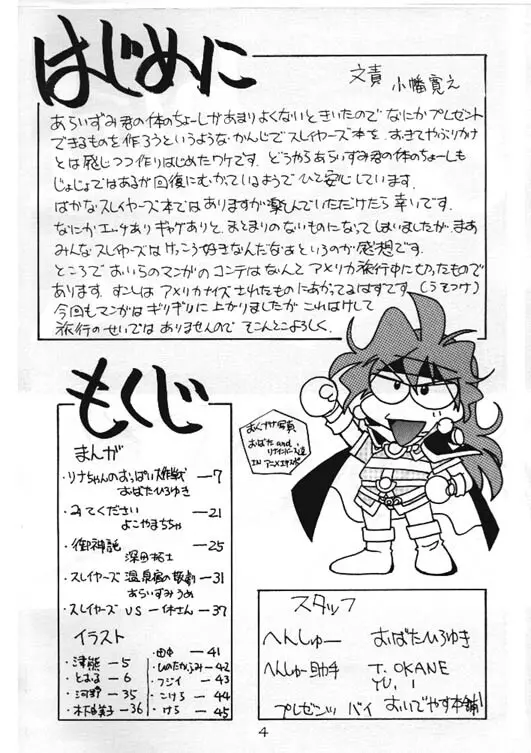 はじめに
文責 小幡寛之
あらいずみ君の体のちょーしがあまりよくないときいたのでなにかプレゼント
できるものを作ろうというようなかんじでスレイヤーズ本を、おきてやぶりかけ
とは感じつつ作りはじめたワケです。どうやらあらいずみ君の体のちょーしも
じょじょではあるが回復にむかっているようでひと安心しています。
ばかなスレイヤーズ本ではありますが楽しんでいただけたら幸いです。
なにかエッチありギャグありと、まとまりのないものになってしまいましたが、まあ
みんなスレイヤーズはけっこう好きなんだなあというのが感想です。
ところでおいらのマンガのコンテはなんとアメリカ旅行中に切ったもので
あります。すこしはアメリカナイズされたものにあがってるはずです。(うそつけ)
今回もマンガはギリギリに上がりましたがこれはけして
旅行のせいではありませんのでそこんとこよろしく。
もくじ
まんが
・リナちゃんのおっぱい大作戦 ―7
おばたひろゆき
・みてください ―21
よこやまちちゃ
・御神説 ―25
深田拓士
・スレイヤーズ 温泉宿の惨劇 ―31
あらいずみうめ
・スレイヤーズ VS 一休さん ―37
イラスト
・津熊 ―5
・とおる ―6
・河野 ―35
・木下由美子 ―36
・田中 ―41
・ひのたかふみ ―42
・フジイ ―43
・こけろ ―44
・けろ ―45
おくづけ写真
おばた and
リナインバース達
IN アニメエキスポ
スタッフ
へんしゅー おばたひろゆき
へんしゅー助手 T. OKANE
YU. I
プレゼンツ バイ おいでやす本舗!
4